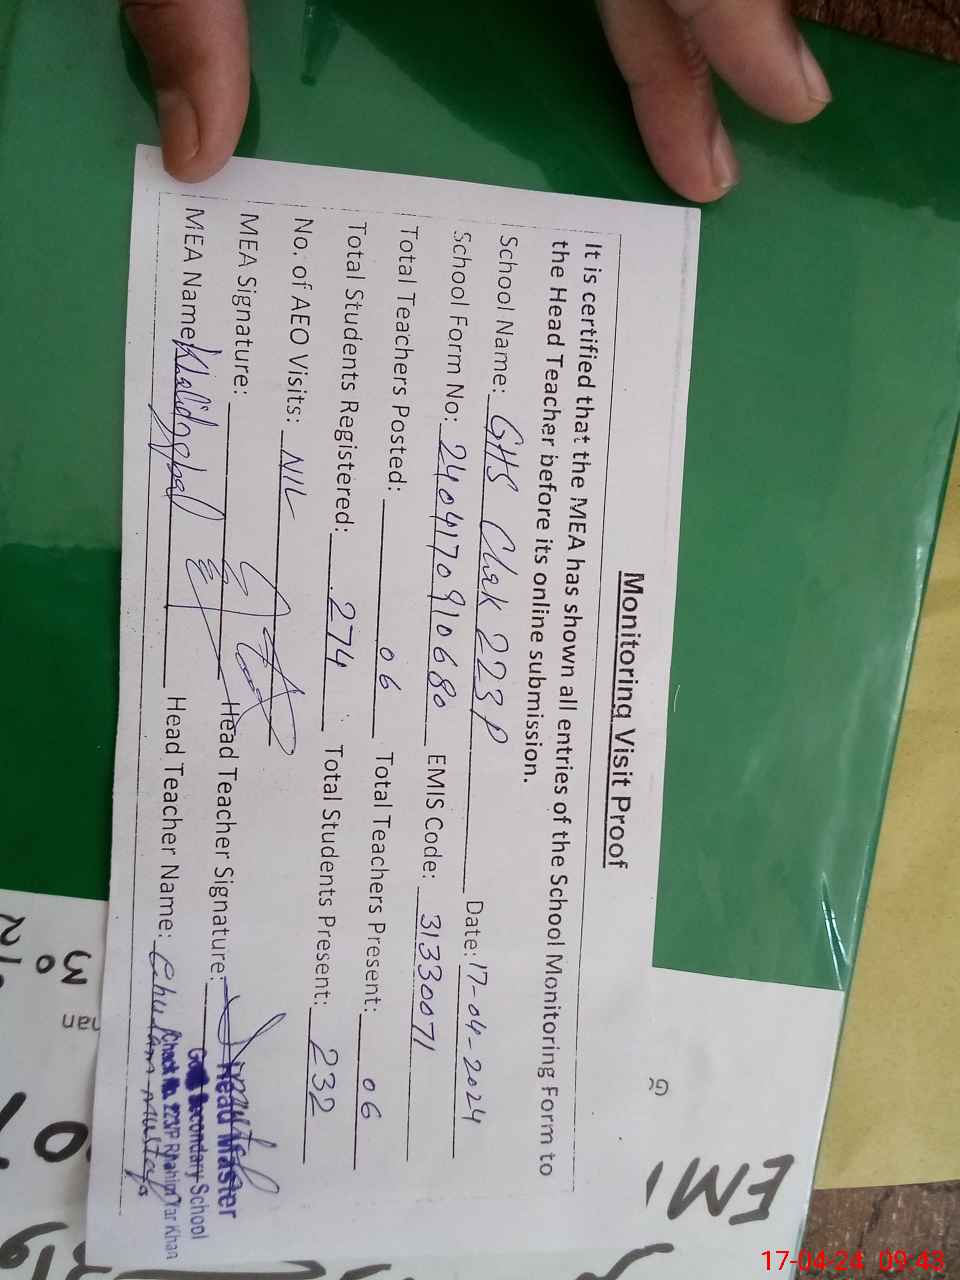 Monitoring Visit Proof
It is certified that the MEA has shown all entries of the School Monitoring Form to
the Head Teacher before its online submission.
School Name: GHS Chak 223 P Date: 17-04-2024
School Form No: 2404170910680 EMIS Code: 31330071
Total Teachers Posted: 06 Total Teachers Present: 06
Total Students Registered: 274 Total Students Present: 232
No. of AEO Visits: NIL
MEA Signature: Head Teacher Signature:
Head Master
MEA Name: Khalid Iqbal Head Teacher Name: Ghulam Mustafa
Secondary School
Chack No. 223/P Rahim Yar Khan
EMI
17-04-24 09:43